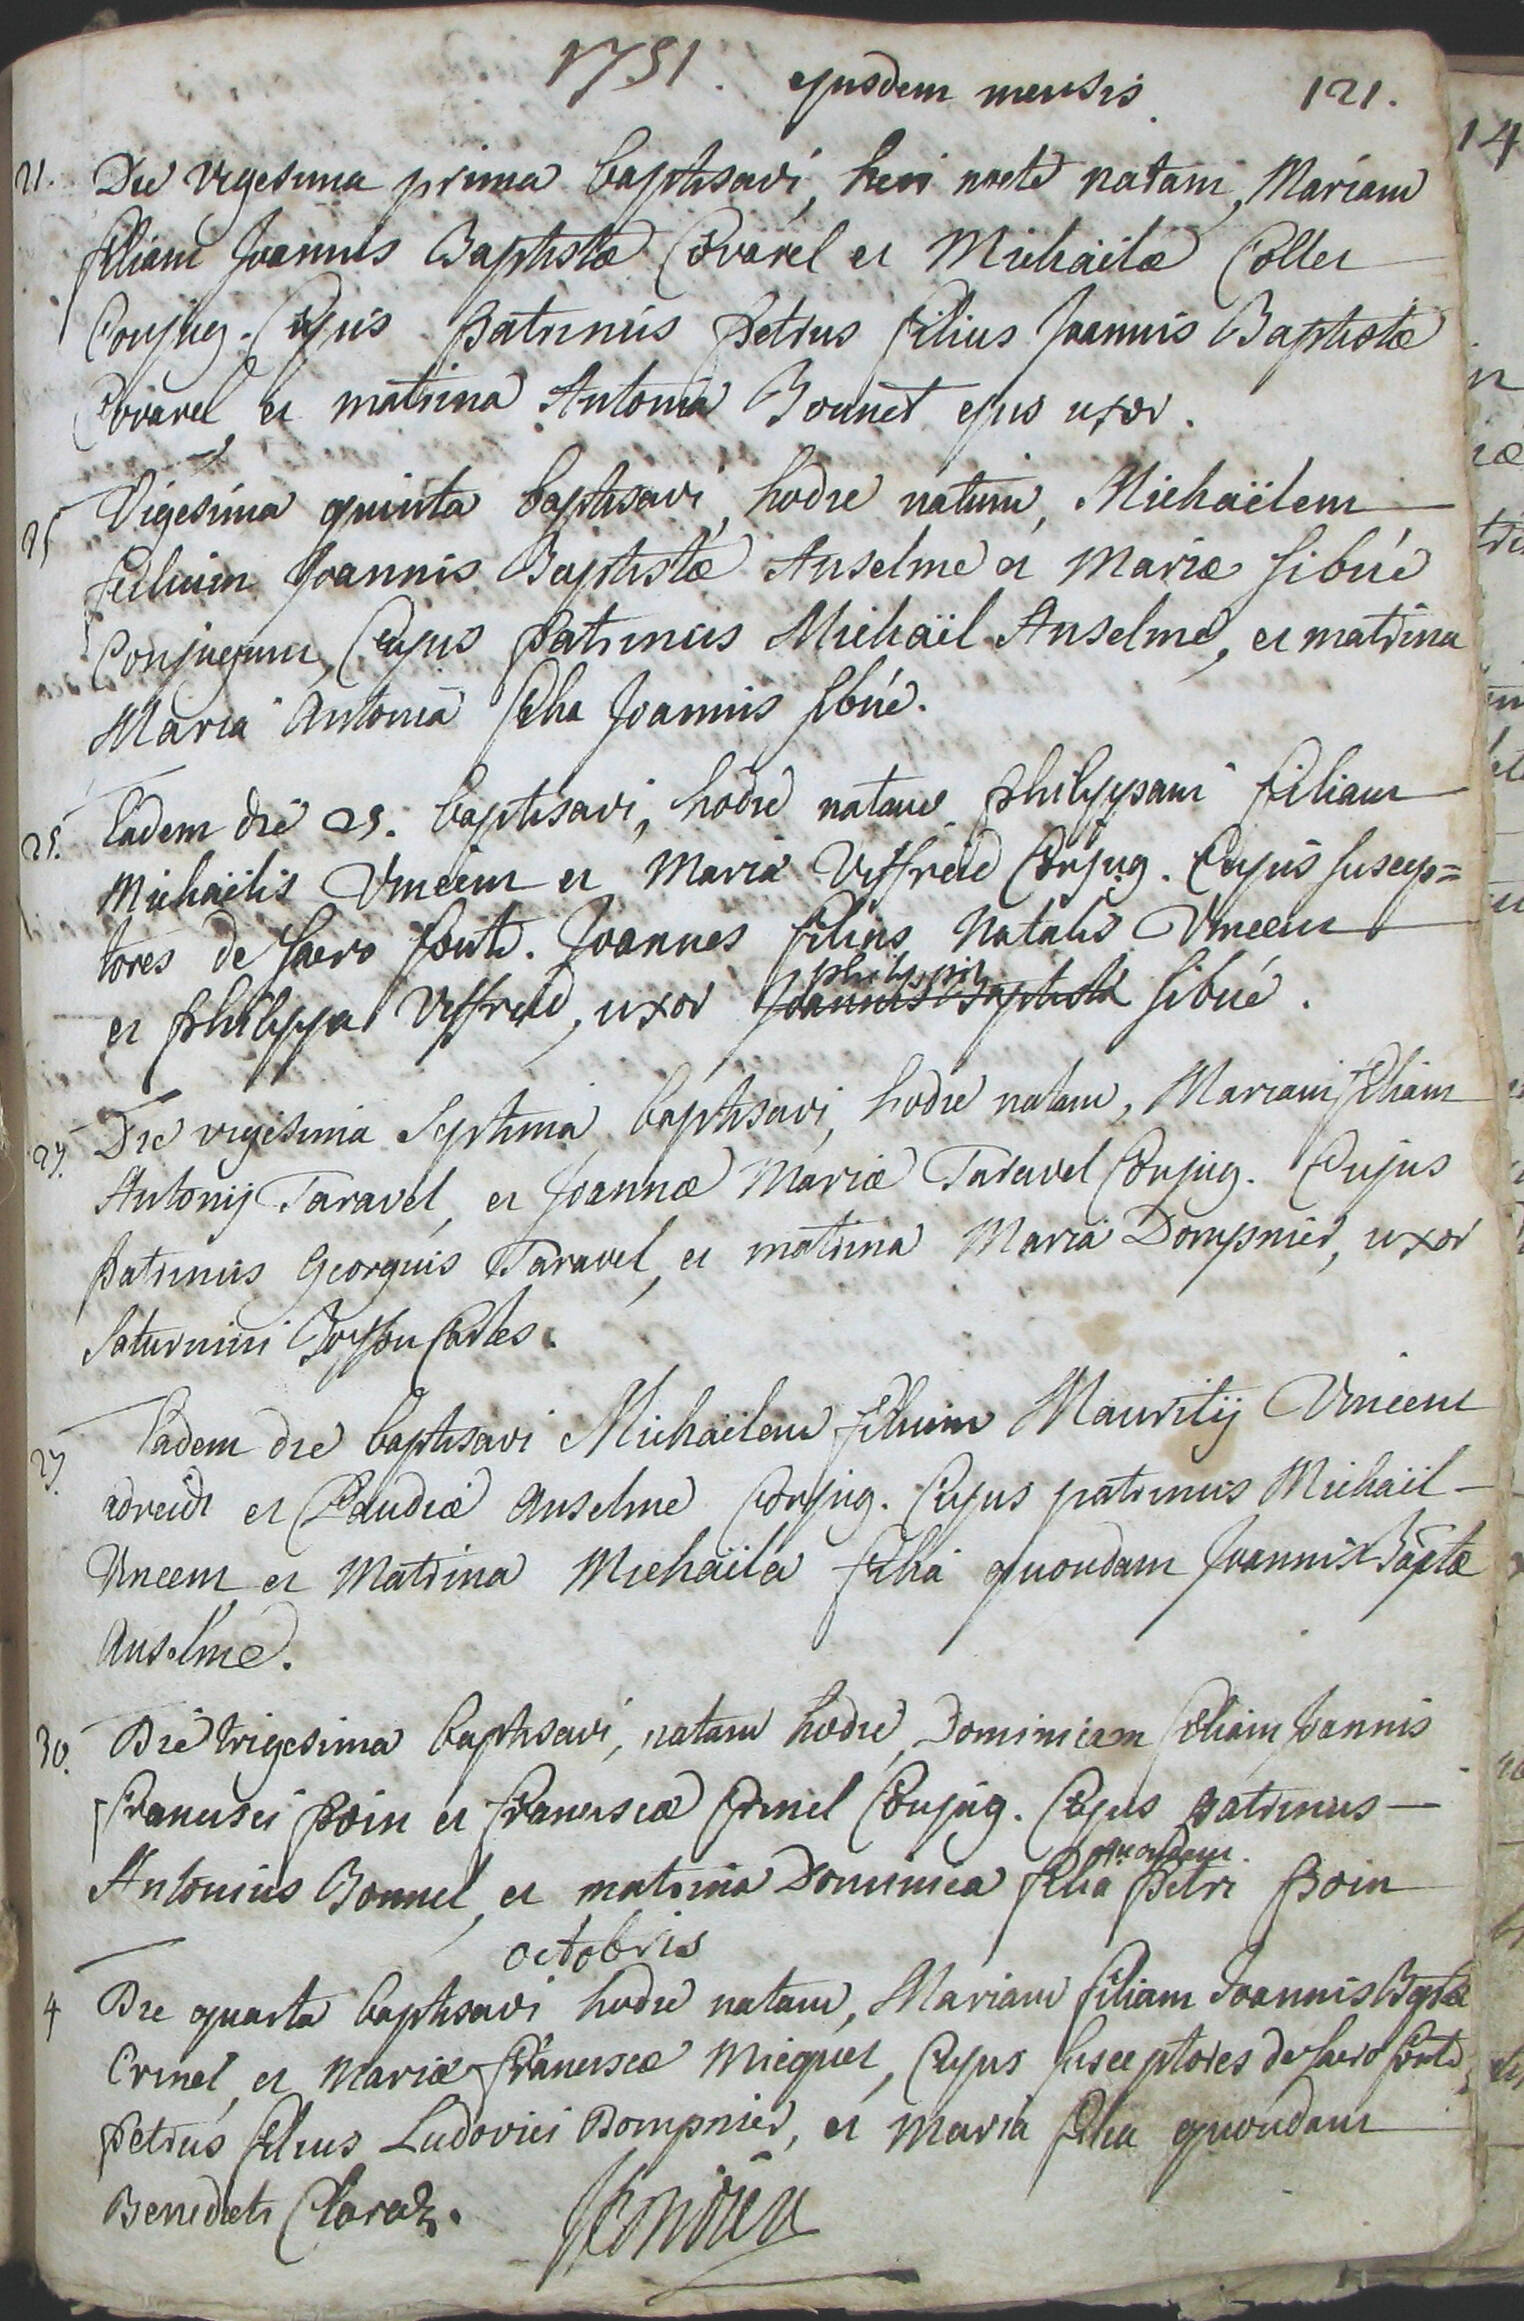 1751. ejusdem mensis. 121.
21. Die vigesima prima baptisavi, heri nocte natam, Mariam
filiam Joannis Baptistæ Covarel et Michaëlæ Collet
Conjug. Cujus Patrinus Petrus filius Joannis Baptistæ
Covarel, et matrina Antonia Bonnet ejus uxor.
25 Vigesima quinta baptisavi, hodie natum, Michaëlem
filium Joannis Baptistæ Anselme et Mariæ Sibué
Conjugum, Cujus Patrinus Michaël Anselme, et matrina
Maria Antonia filia Joannis Sibué.
25. Eadem die 25. baptisavi, hodie natam philippam filiam
Michaëlis Vincent et Maria Viffreid Conjug. Cujus suscep=
tores de sacro fonte. Joannes filius Natalis Vincent
et philippa Viffreid, uxor Joannis Baptistæ philippi Sibué.
27. Die vigesima septima baptisavi, hodie natam, Mariam filiam
Antonij Taravel, et Joannæ Mariæ Taravel Conjug. Cujus
Patrinus Georgius Taravel, et matrina Maria Dompnier, uxor
Saturnini Cortes.
27. Eadem die baptisavi Michaëlem filium Mauritij Vincent
et Claudiæ Anselme Conjug. Cujus patrinus Michaël
Vincent, et Matrina Michaëla filia quondam Joannis Baptæ
Anselme.
30. Die trigesima baptisavi, natam hodie, Dominicam filiam Joannis
Francisci Poin et Franciscæ Crinel Conjug. Cujus patrinus
Antonius Bonnel, et matrina Dominica filia quondam Petri Poin
octobris
4 Die quarta baptisavi hodie natam, Mariam filiam Joannis Bptæ
Crinel, et Mariæ Franciscæ Micquet, Cujus susceptores de sacro fonte,
Petrus filius Ludovici Dompnier, et Maria filia quondam
Benedicti Claraz.